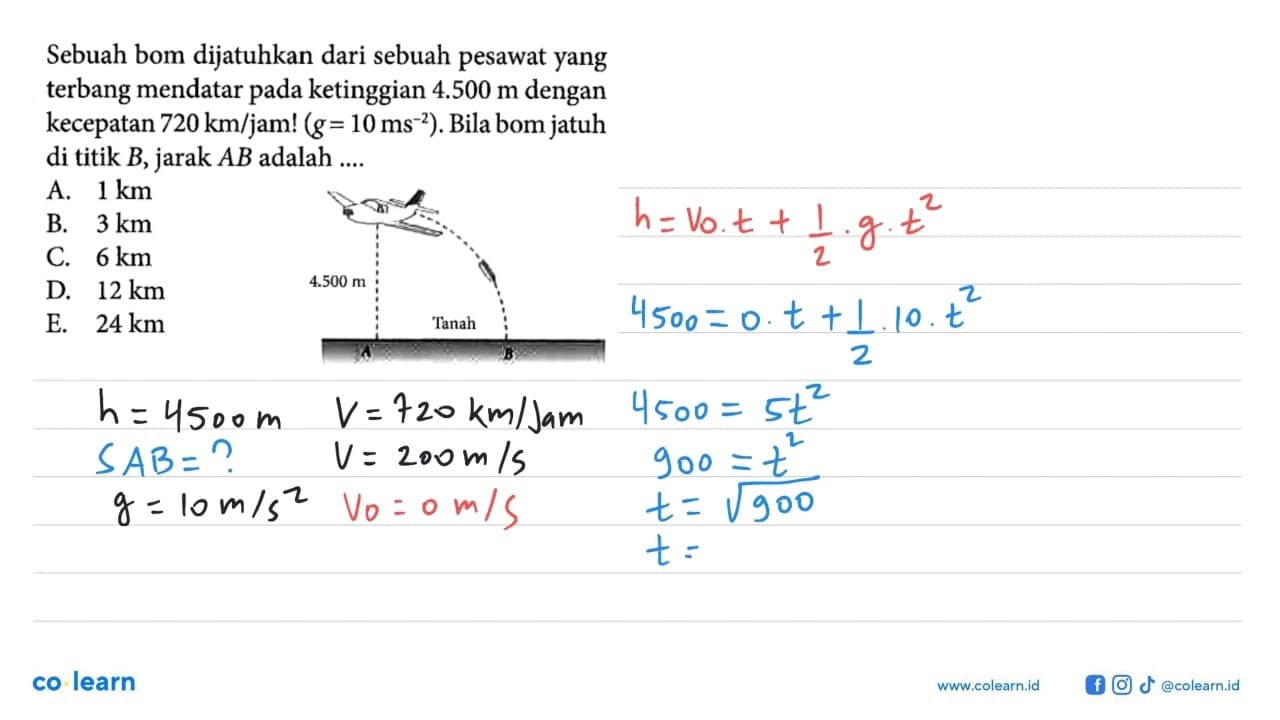 Sebuah bom dijatuhkan dari sebuah pesawat yang
terbang mendatar pada ketinggian 4.500 m dengan
kecepatan 720 km/jam! (g = 10 ms⁻²). Bila bom jatuh
di titik B, jarak AB adalah ....
A. 1 km
B. 3 km
C. 6 km
D. 12 km
E. 24 km
4.500 m
Tanah
A
B
h = 4500 m
SAB = ?
g = 10 m/s²
V = 720 km/Jam
V = 200 m/s
Vo = 0 m/s
h = Vo.t + 1/2 . g . t²
4500 = 0. t + 1/2 . 10 . t²
4500 = 5t²
900 = t²
t = √900
t =
co learn
www.colearn.id
@colearn.id